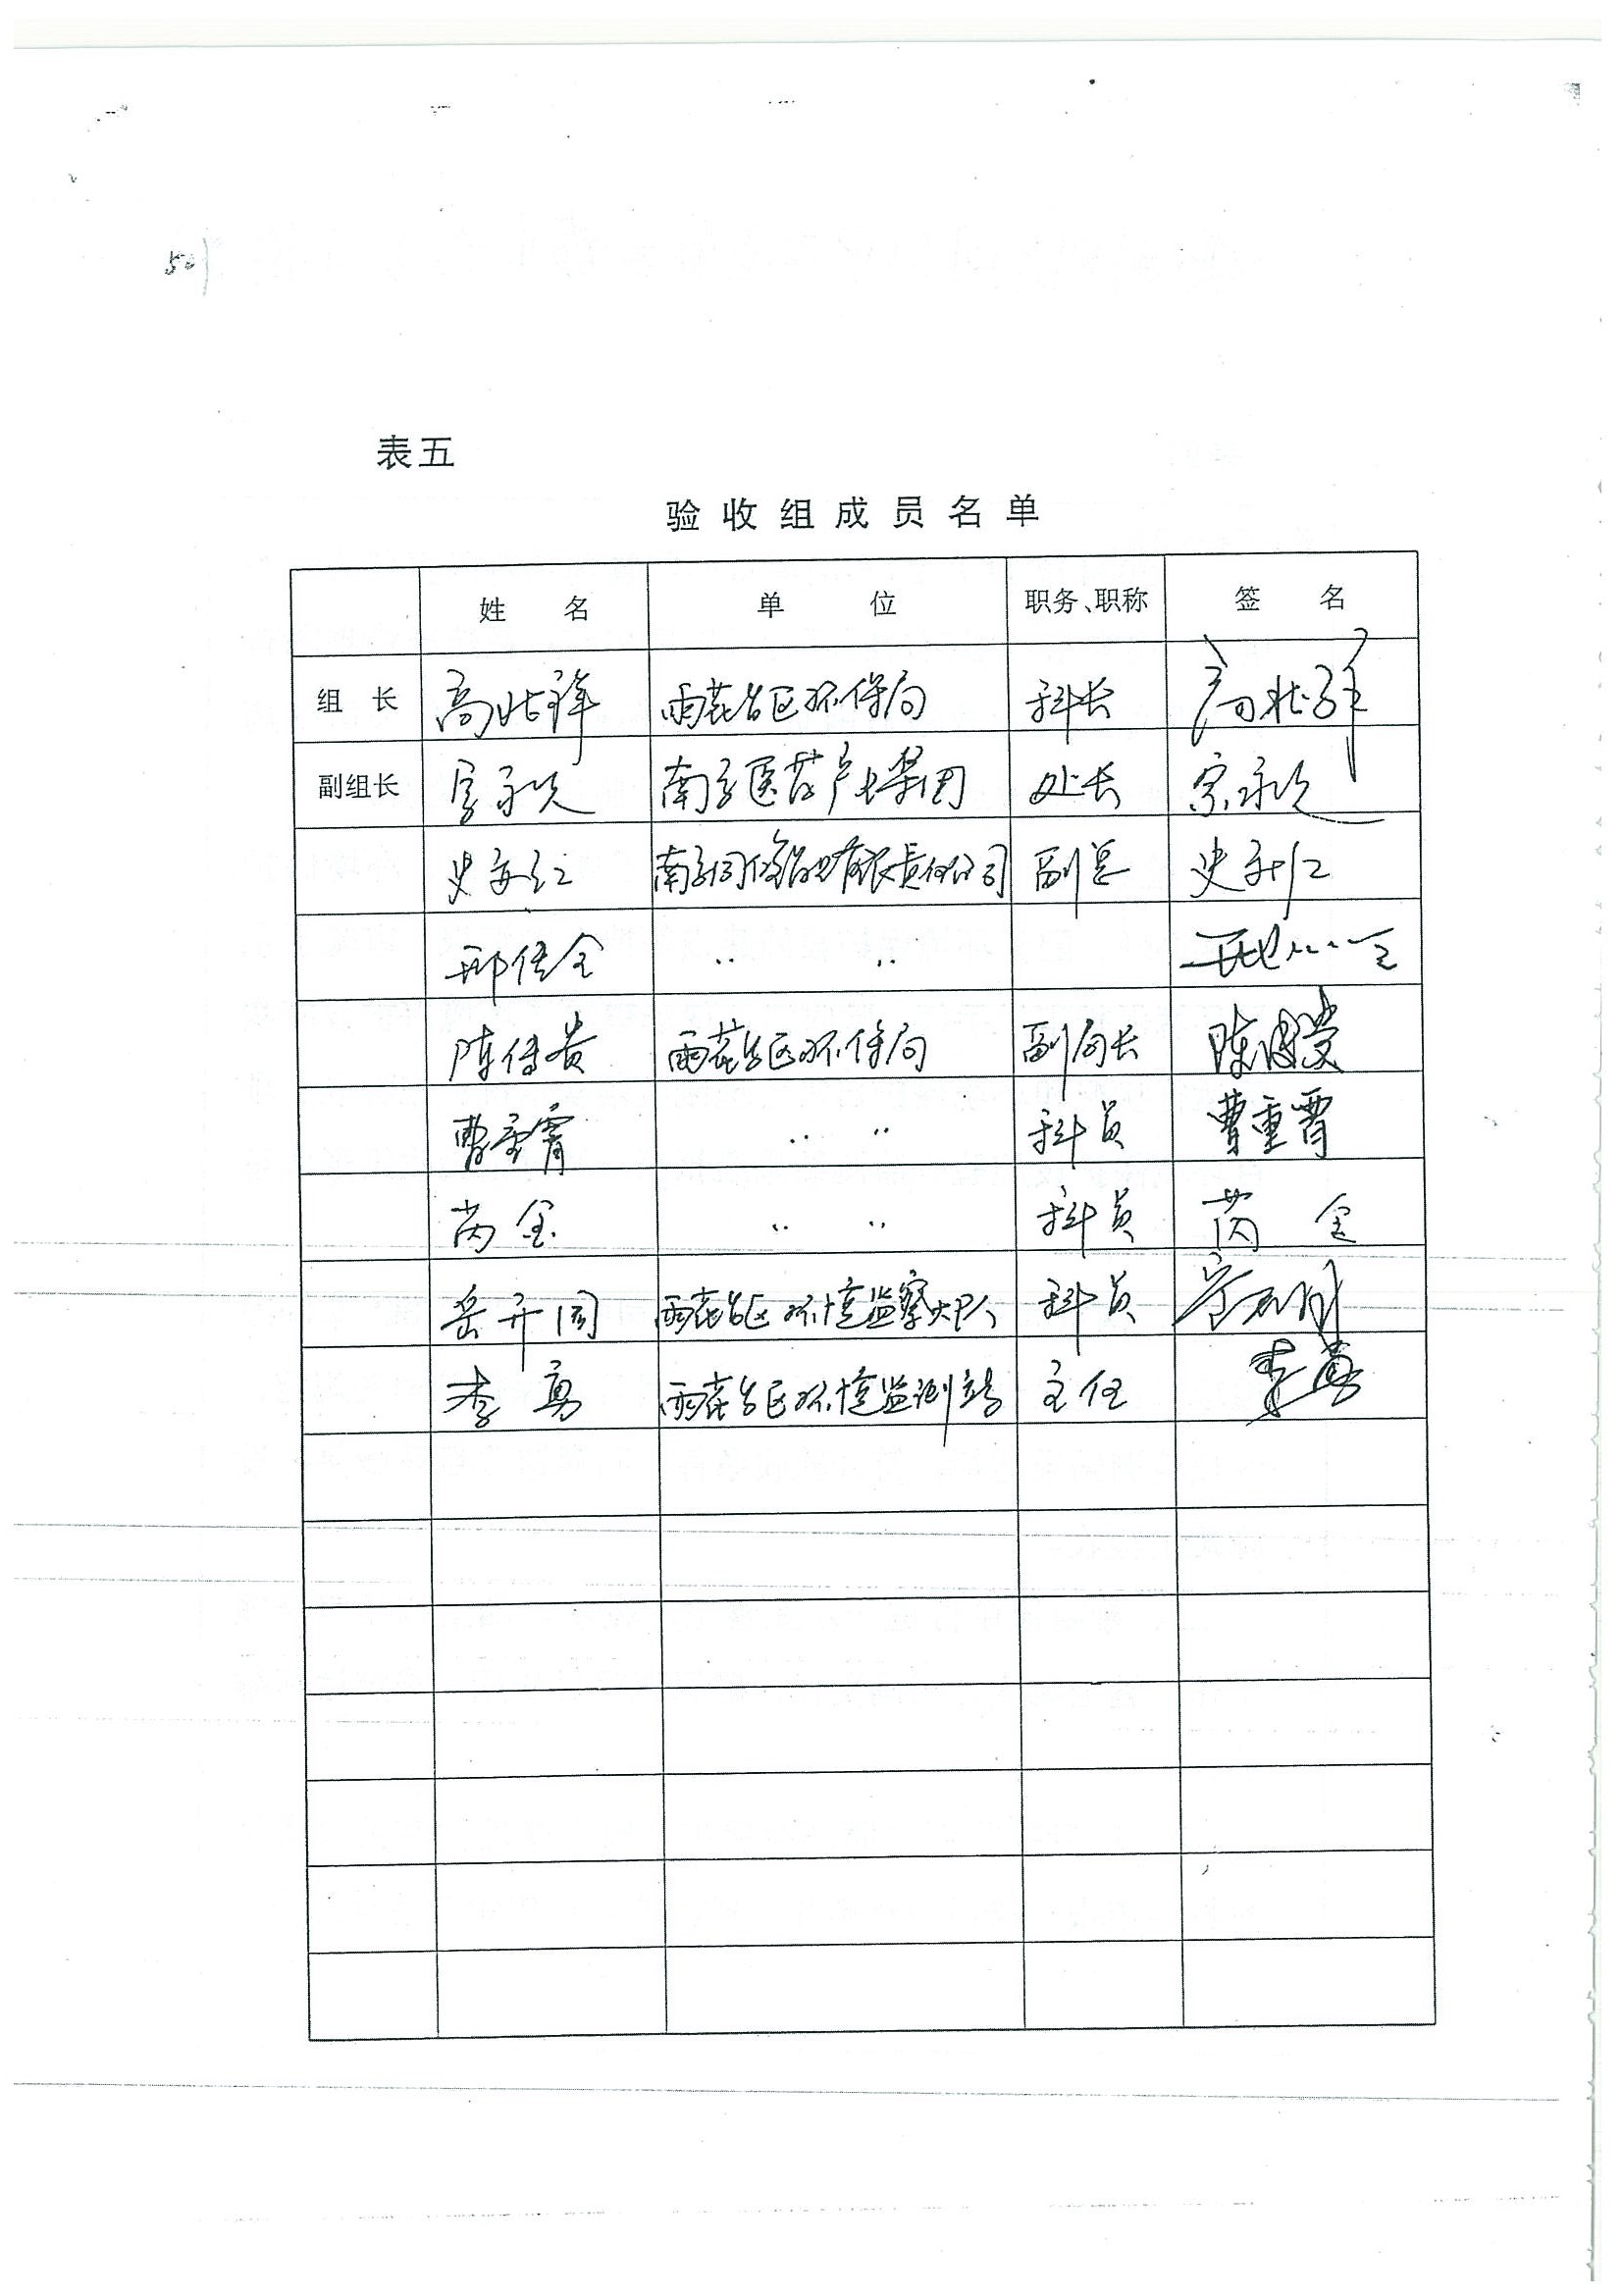 50
表五
验收组成员名单
姓 名 单 位 职务、职称 签 名
组 长 高兆祥 雨花台区环保局 科长 高兆祥
副组长 宗永久 南京医药产业集团 处长 宗永久
史 南京同仁堂药业有限责任公司 副总 史
邢传全 〃 〃 邢 全
陈传贵 雨花台区环保局 副局长 陈传贵
曹重霄 〃 〃 科员 曹重霄
芮金 〃 〃 科员 芮金
岳开国 雨花台区环境监察大队 科员
李勇 雨花台区环境监测站 主任 李勇